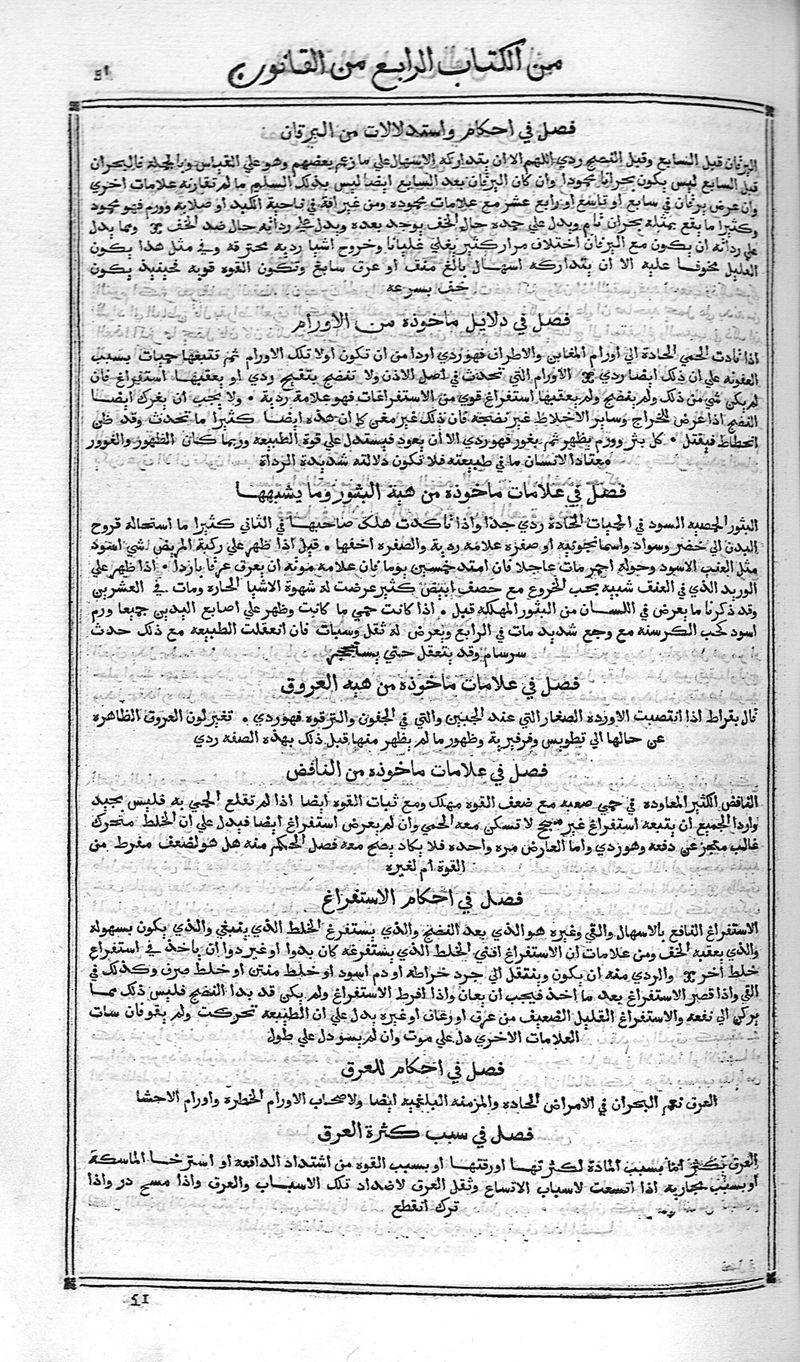 من الكتاب الرابع من القانون
٥١
فصل في احكام واستدلالات من اليرقان
اليرقان قبل السابع وقبل النضج ردي اللهم الا ان يتداركه الاسهال علي ما زعم بعضهم وهو علي القياس وبالجملة فالبحران
قبل السابع ليس يكون بحرانا محمودا وان كان اليرقان بعد السابع ايضا ليس بذلك السليم ما لم تقارنه علامات اخري
وان عرض يرقان في سابع او تاسع او رابع عشر مع علامات محموده ومن غير افة في ناحية الكبد او صلابه وورم فهو محمود
وكثيرا ما يقع بمثله بحران تام ويدل علي حمده حال الخف يوجد بعده ويدل علي ردأته حال ضد الخف ※ ومما يدل
علي ردأته ان يكون مع اليرقان اختلاف مرار كثير يغلي غليانا وخروج اشيا رديه محترقه وفي مثل هذا يكون
العليل مخوفا عليه الا ان يتداركه اسهال بالغ منف او عرق سابغ وتكون القوه قويه فحينيذ يكون
خف بسرعه
فصل في دلايل ماخوذه من الاورام
اذا تادت الحمي الحادة الي اورام المغابن والاطراف فهو ردي اردا من ان تكون اولا تلك الاورام ثم تتبعها حميات بسبب
العفونه علي ان ذلك ايضا ردي ※ الاورام التي تحدث في اصل الاذن ولا تنضج بتقيح ردي او يعقبها استفراغ فان
لم يكن شي من ذلك ولم ينضج ولم يعقبها استفراغ قوي من الاستفراغات فهو علامة ردية • ولا يجب ان يغرك ايضا
النضج اذا عرض للخراج وساير الاخلاط غير نضجه فان ذلك غير مغن كا ان هذه ايضا كثيرا ما تحدث وقد ظن
انحطاط فيقتل • كل بثر وورم يظهر ثم يغور فهو ردي الا أن يعود فيستدل علي قوة الطبيعه وربما كان الظهور والغوور
معتادا الانسان ما في طبيعته فلا تكون دلالته شديدة الردأة
فصل في علامات ماخوذه من هية البثور وما يشبهها
البثور الحمصيه السود في الحميات الحادة ردي جدا واذا تأكدت هلك صاحبها في الثاني كثيرا ما استحاله قروح
البدن الي خضر وسواد واسمانجونيه او صفره علامه ردية والصفره اخفها • قيل اذا ظهر علي ركبة المريض شي اسود
مثل العنب الاسود وحوله احمر مات عاجلا فان امتد خمسين يوما فان علامه موته ان يعرق عرقا باردا • اذا ظهر علي
الوريد الذي في العنق شبيه بحب الخروع مع حصف ابيض كثير عرضت له شهوة الاشيا الحاره ومات في العشرين
وقد ذكرنا ما يعرض في اللسان من البثور المهلكة قيل • اذا كانت حمي ما كانت وظهر علي اصابع اليدين جميعا ورم
اسود كحب الكرسنه مع وجع شديد مات في الرابع ويعرض له ثقل وسبات فان انعقلت الطبيعه مع ذلك حدث
سرسام وقد يتعقل حتي يستحجر
فصل في علامات ماخوذه من هيه العروق
قال بقراط اذا انتصبت الاورده الصغار التي عند الجبين والتي في الجفون والترقوه فهو ردي • تغير لون العروق الظاهره
عن حالها الي تطويس وفرفيرية وظهور ما لم يظهر منها قبل ذلك بهذه الصفه ردي
فصل في علامات ماخوذه من النافض
النافض الكثير المعاوده في حمي صعبه مع ضعف القوه مهلك ومع ثبات القوه ايضا اذا لم تقلع الحمي به فليس بجيد
واردا الجميع ان يتبعه استفراغ غير منجح لا تسكن معه الحمي وان لم يعرض استفراغ ايضا فيدل علي ان الخلط متحرك
غالب معجز عن دفعه وهو ردي واما العارض مره واحده فلا يكاد يصح معه فصل الحكم منه هل هو لضعف مفرط من
القوة ام لغيره
فصل في احكام الاستفراغ
الاستفراغ النافع بالاسهال والقي وغيره هو الذي بعد النضج والذي يستفرغ الخلط الذي ينبغي والذي يكون بسهوله
والذي يعقبه الخف ومن علامات ان الاستفراغ افني الخلط الذي يستفرغه كان بدوا او غير دوا ان ياخذ في استفراغ
خلط أخر ※ والردي منه ان يكون وينتقل الي جرد خراطه او دم اسود او خلط منتن او خلط صرف وكذلك في
القي واذا قصر الاستفراغ بعد ما اخذ فيجب ان يعان واذا افرط الاستفراغ ولم يكن قد بدا النضج فليس ذلك مما
يركن الي نفعه والاستفراغ القليل الضعيف من عرق او رعاف او غيره يدل علي ان الطبيعه تحركت ولم يقو فان سات
العلامات الاخري دل علي موت وان لم يسو دل علي طول
فصل في احكام للعرق
العرق نعم البحران في الامراض الحادة والمزمنه البلغميه ايضا ولاصحاب الاورام الخطره واورام الاحشا
فصل في سبب كثرة العرق
العرق يكثر اما بسبب المادة لكثرتها او رقتها او بسبب القوه من اشتداد الدافعه او استرخا الماسكة
او بسبب مجاريه اذا اتسعت لاسباب الاتساع وتقل العرق لاضداد تلك الاسباب والعرق واذا مسح در واذا
ترك انقطع